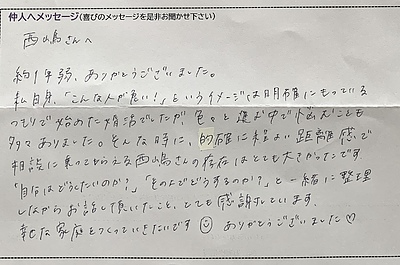 仲人へメッセージ(喜びのメッセージを是非お聞かせ下さい)
西嶋さんへ
約1年弱、ありがとうございました。
私自身、「こんな人が良い!」というイメージは明確にもっている
つもりで始めた婚活でしたが色々と進む中で悩むことも
多々ありました。そんな時に、的確に程よい距離感で
相談に乗ってもらえる西嶋さんの存在はとても大きかったです
「自分はどうしたいのか?」「その上でどうするのか?」と一緒に整理
しながらお話して頂いたこと、とても感謝しています。
幸せな家庭をつくっていきたいです☺ ありがとうございました♡